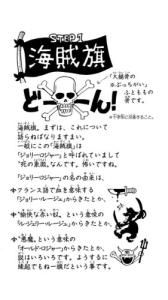 STEP 1
海賊旗
どーん!
「大腿骨の
※ぶっちがい」
ふとももの
骨です。
※十字形に交差すること。
海賊旗。まずは、これについて
語らねばなりますまい。
一般にこの「海賊旗」は
「ジョリーロジャー」と呼ばれていまして
「死の象徴」なんです。怖いですね。
「ジョリーロジャー」の名の由来は、
フランス語で血を意味する
「ジョリー・ルージュ」からきたとか、
"愉快な赤い奴"という意味の
「ル・ジョリー・ルージュ」からきたとか、
"悪魔"という意味の
「オールド・ロジャー」からきたとか、
説はいろいろです。ようするに
縁起でもねー旗だという事です。